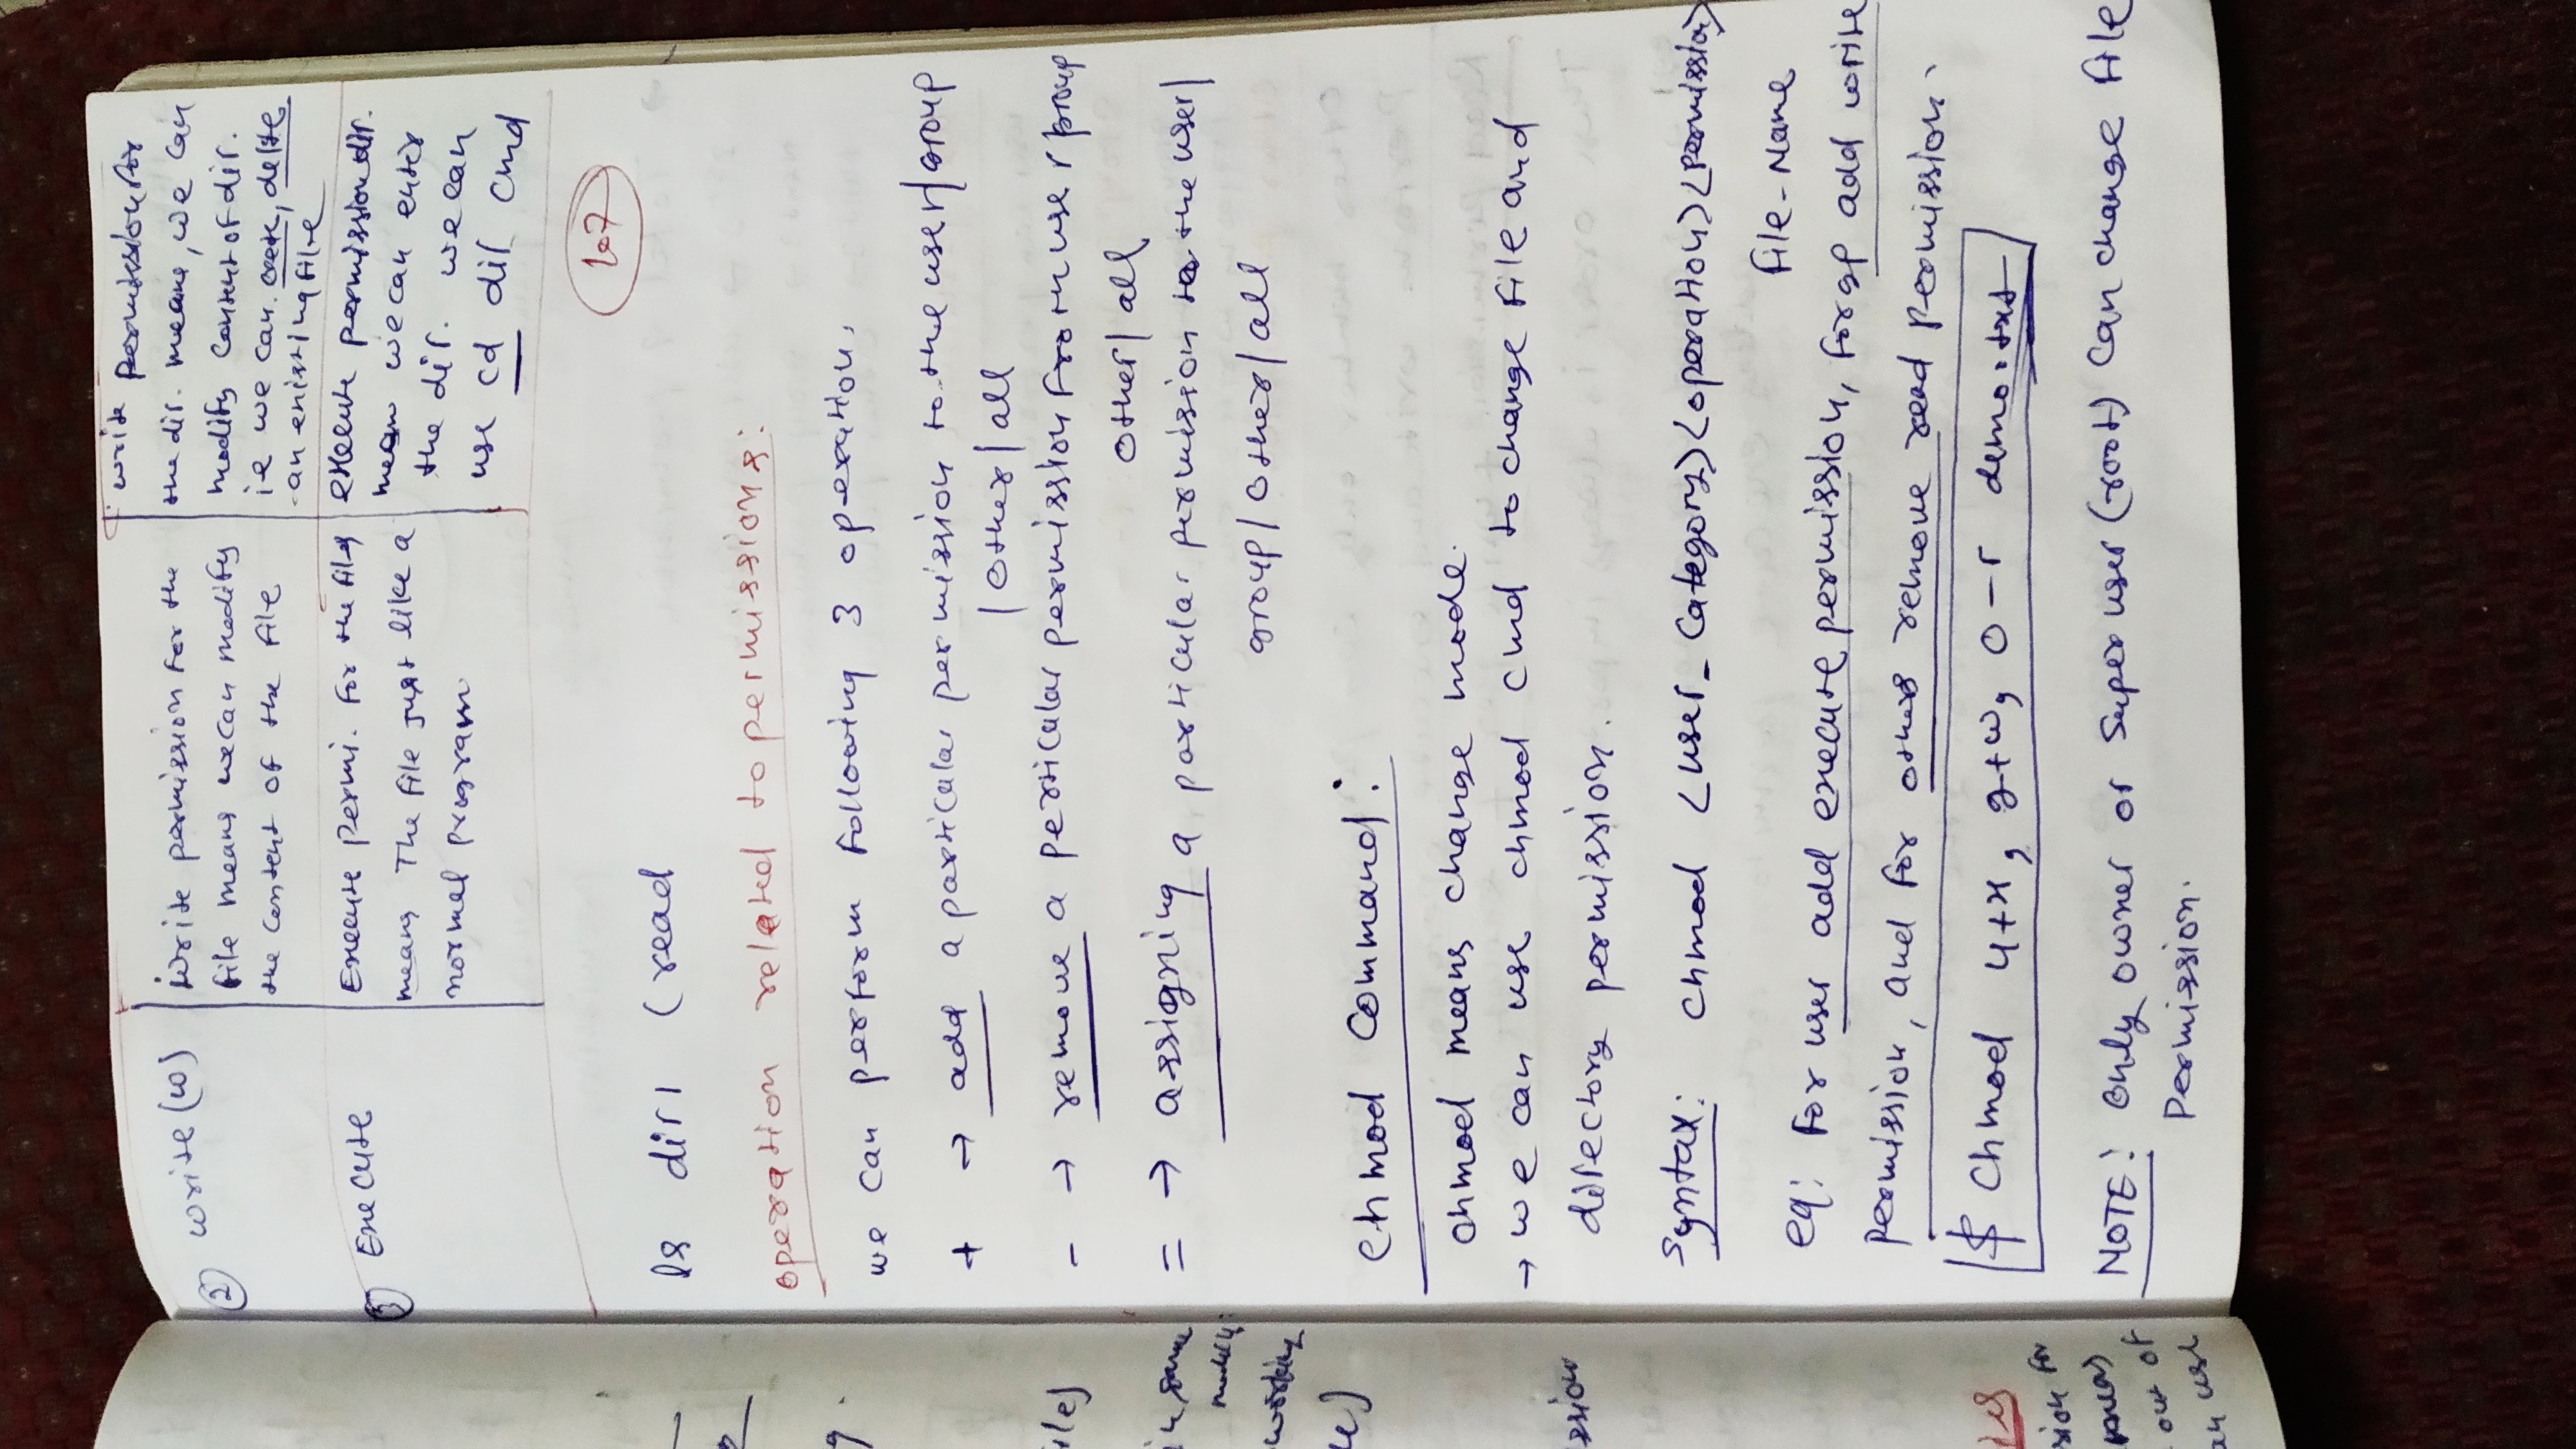 ② write (w)
write permission for the
file means we can modify
the content of the file
write permission for
the dir. means, we can
modify content of dir.
ie we can. crete, delte
an existing file
③ Execute
Execute permi. for the files
means The file just like a
normal program
execute permission dir.
mean we can enter
the dir. we can
use cd dir cmd
107
ls dir1 (read
operation related to permissions:
we can perform following 3 operation.
+ → add a particular permission to the user/group
/other/all
- → remove a perticular permission from user/group
other/all
= → assigning a particular permission to the user/
group/other/all
chmod command:
chmod means change mode.
→ we can use chmod cmd to change file and
directory permission.
Syntax: chmod <user_category><operation><permission>
file-Name
eg: for user add execute permission, for gp add write
permission, and for others remove read permission.
$ chmod u+x, g+w, o-r demo.txt
NOTE: only owner or Super user (root) can change file
Permission.
iles
in same
working
ssion
sion for
out of
an use